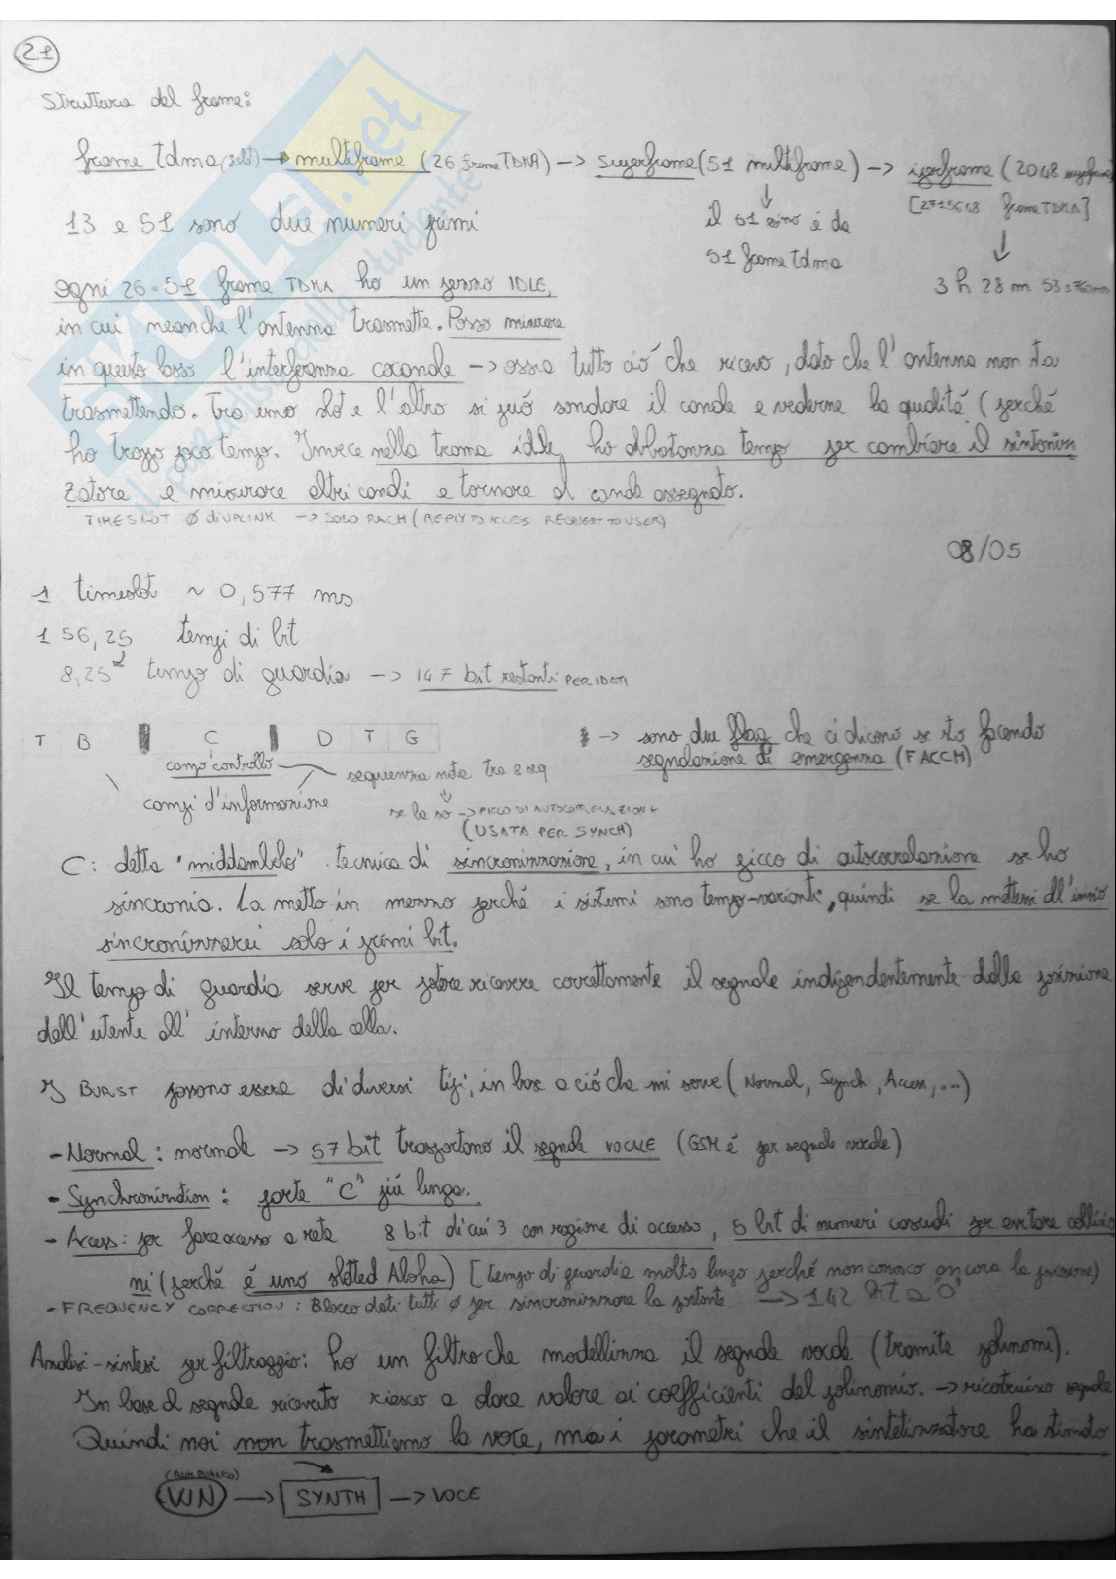 21
Struttura del frame:
frame tdma (slot) → multiframe (26 frame TDMA) → superframe (51 multiframe) → iperframe (2048 superframe
[2715648 frame TDMA]
il 51 sino è da
51 frame tdma
3 h 28 m 53s 760ms
13 e 51 sono due numeri primi
ogni 26·51 frame TDMA ho un IDLE,
in cui neanche l'antenna trasmette. Posso misurare
in questo lasso l'interferenza cocanale → ossia tutto ciò che ricevo, dato che l'antenna non sta
trasmettendo. Tra uno slot e l'altro si può sondare il canale e vederne la qualità (perché
ho troppo poco tempo. Invece nella trama idle, ho abbastanza tempo per cambiare il sintoniz
zatore e misurare altri canali e tornare al canale assegnato.
TIMESLOT 0 di UPLINK → SOLO RACH (REPLY TO ACCES REQUEST TO USER)
08/05
1 timeslot ~ 0,577 ms
156,25 tempi di bit
8,25 tempo di guardia → 147 bit restanti PER I DATI
T B C D T G
→ sono due flag che ci dicono se sto facendo
segnalazione di emergenza (FACCH)
campo controllo
campi d'informazione
sequenza nota tra 8 seq
se la so → PICCO DI AUTOCORRELAZIONE
(USATA PER SYNCH)
C: detta "middambolo" tecnica di sincronizzazione, in cui ho picco di autocorrelazione se ho
sincronia. La metto in mezzo perché i sistemi sono tempo-varianti, quindi se la mettessi all'inizio
sincronizzerei solo i primi bit.
Il tempo di guardia serve per potere ricevere correttamente il segnale indipendentemente dalla posizione
dell'utente all'interno della cella.
I BURST possono essere di diversi tipi, in base a ciò che mi serve (Normal, Synch, Access, ...)
- Normal: normale → 57 bit trasportano il segnale vocale (GSM è per segnale vocale)
- Synchronization: parte "C" più lunga.
- Access: per fare accesso a rete 8 bit di cui 3 con ragione di accesso, 5 bit di numeri casuali per evitare collisio
ni (perché è uno slotted Aloha) [tempo di guardia molto lungo perché non conosco ancora la posizione)
- FREQUENCY CORRECTION: Blocco dati tutti 0 per sincronizzare la portante → 142 BIT a "0"
Analisi-sintesi per filtraggio: ho un filtro che modellizza il segnale vocale (tramite polinomi).
In base al segnale ricevuto riesco a dare valore ai coefficienti del polinomio. → ricostruisco segnale
Quindi noi non trasmettiamo la voce, ma i parametri che il sintetizzatore ha stimato
WN → SYNTH → VOCE